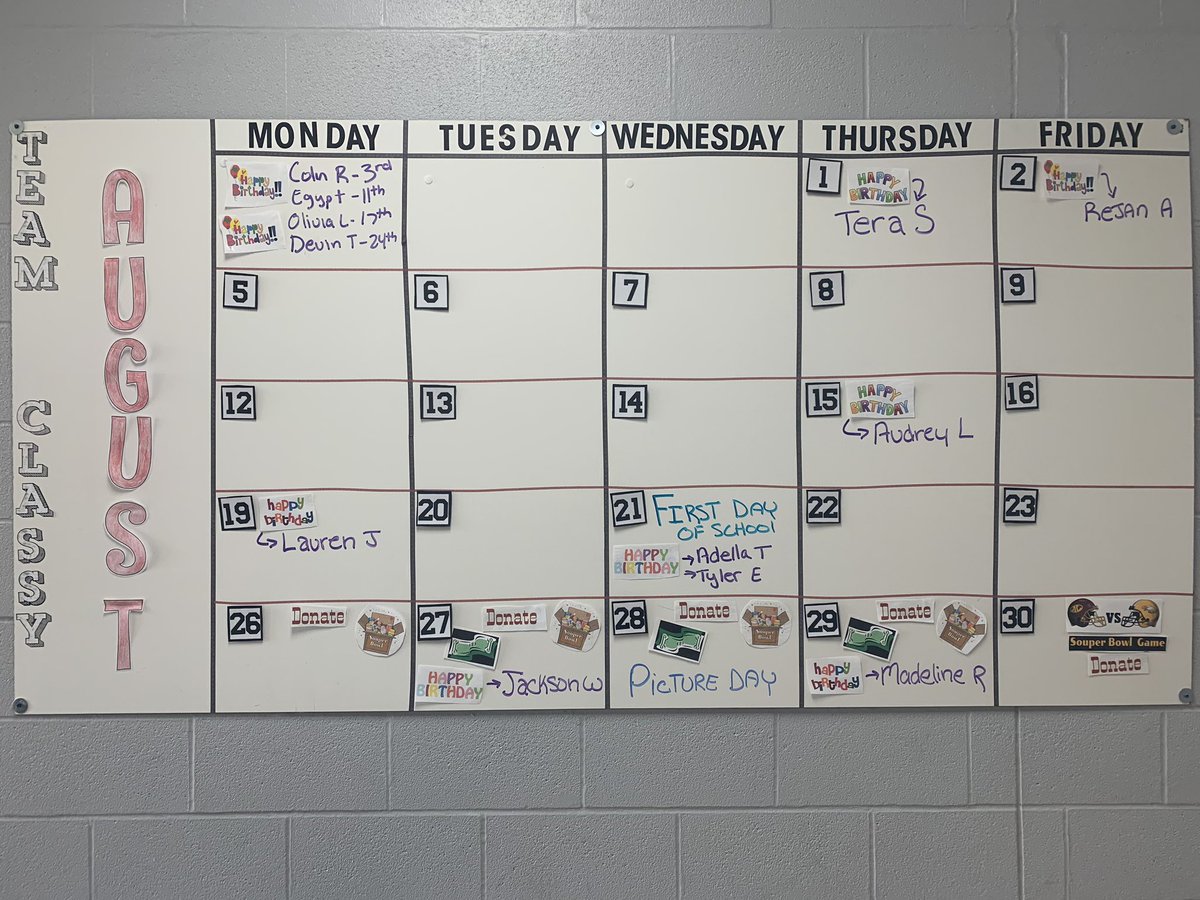 TEAM CLASSY
AUGUST
MONDAY TUESDAY WEDNESDAY THURSDAY FRIDAY
Happy Birthday!!
Happy Birthday!!
Colin R - 3rd
Egypt - 11th
Olivia L - 17th
Devin T - 24th
1
HAPPY BIRTHDAY
Tera S
2
Happy Birthday!!
Rejan A
5
6
7
8
9
12
13
14
15
HAPPY BIRTHDAY
Audrey L
16
19
happy birthday
Lauren J
20
21
FIRST DAY
OF SCHOOL
HAPPY BIRTHDAY
Adella T
Tyler E
22
23
26
Donate
Souper Bowl
27
Donate
Souper Bowl
HAPPY BIRTHDAY
Jackson W
28
Donate
Souper Bowl
PICTURE DAY
29
Donate
Souper Bowl
happy birthday
Madeline R
30
VS
Souper Bowl Game
Donate